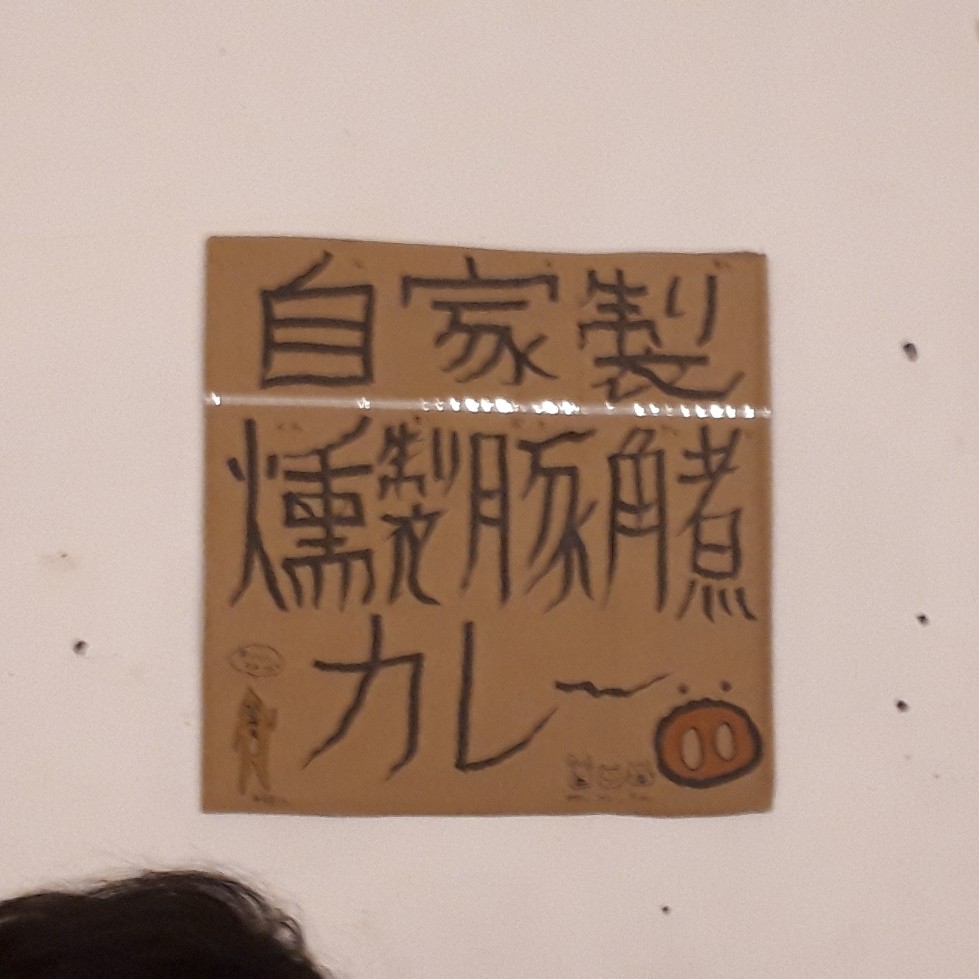 自家製
燻製豚角煮
カレー